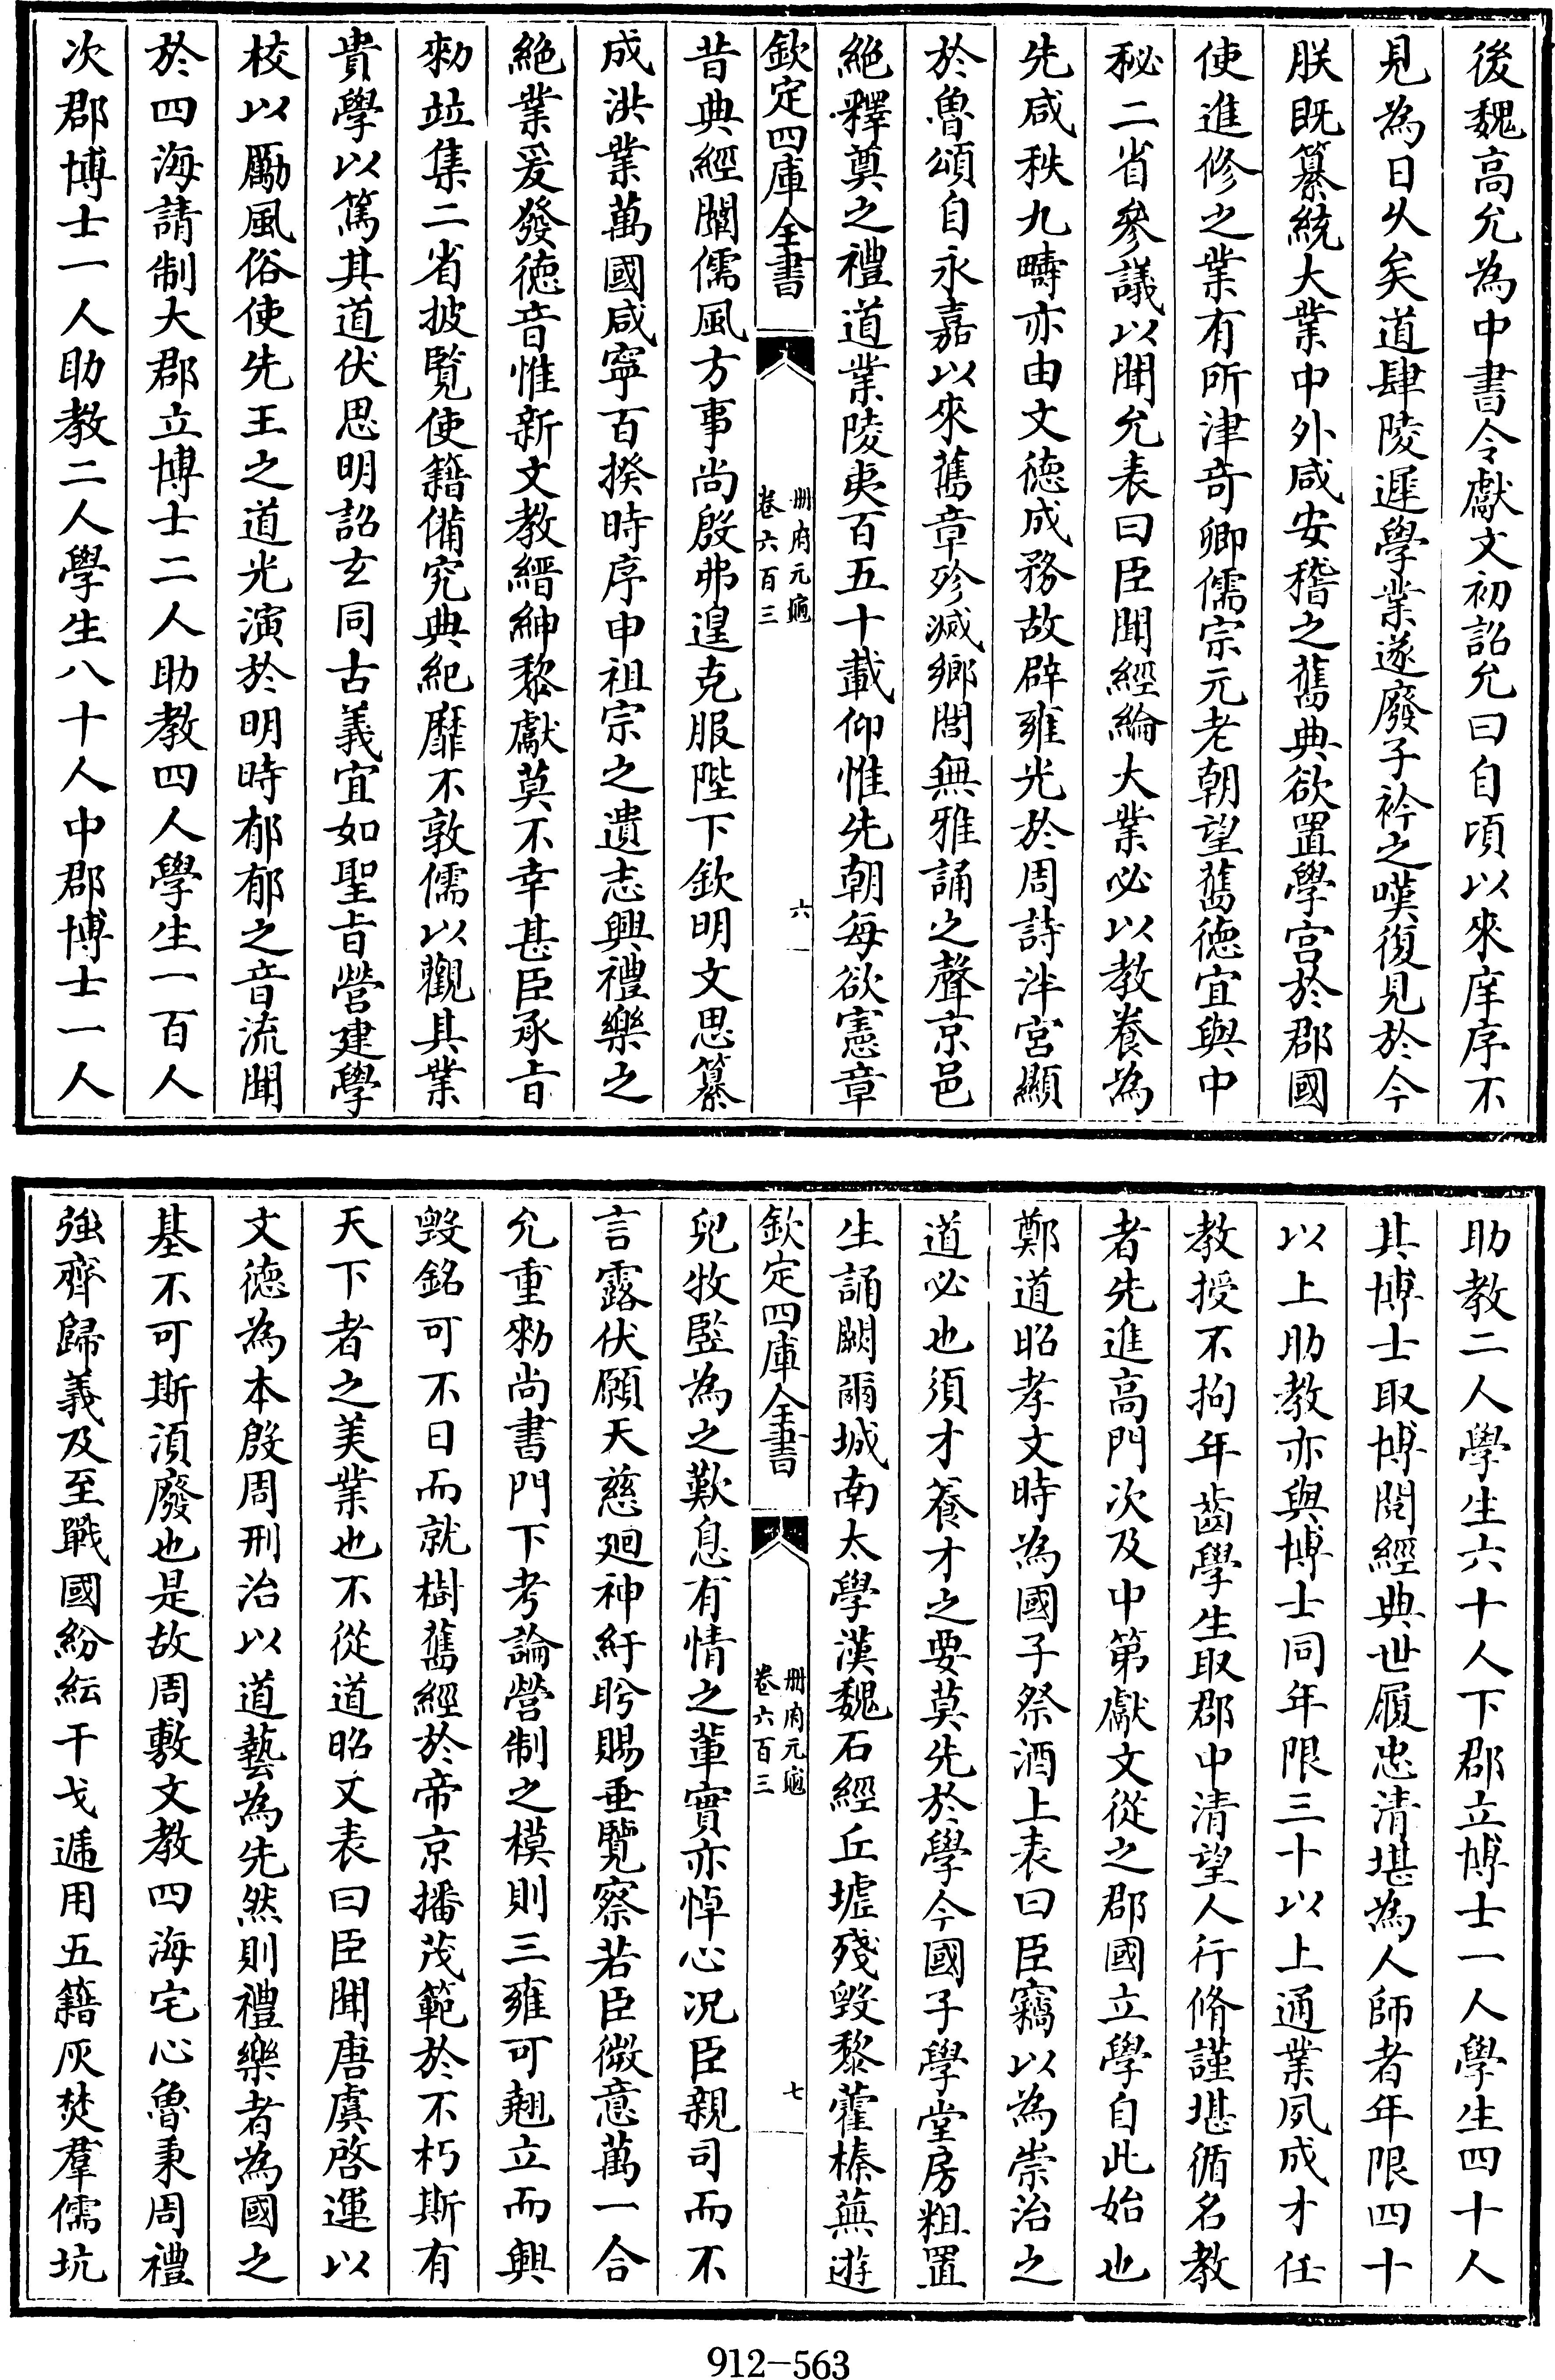 後魏高允為中書令獻文初詔允曰自頃以來庠序不
見為日久矣道肆陵遲學業遂廢子衿之嘆復見於今
朕既纂統大業中外咸安稽之舊典欲置學官於郡國
使進修之業有所津寄卿儒宗元老朝望舊德宜與中
秘二省參議以聞允表曰臣聞經綸大業必以教養為
先咸秩九疇亦由文德成務故辟雍光於周詩泮宮顯
於魯頌自永嘉以來舊章殄滅鄉閭無雅誦之聲京邑
絕釋奠之禮道業陵夷百五十載仰惟先朝每欲憲章
欽定四庫全書
冊府元龜
卷六百三
六
昔典經闡儒風方事尚殷弗遑克服陛下欽明文思纂
成洪業萬國咸寧百揆時序申祖宗之遺志興禮樂之
絕業爰發德音惟新文教縉紳黎獻莫不幸甚臣承旨
勑竝集二省披覽使籍備究典紀靡不敦儒以觀其業
貴學以篤其道伏思明詔玄同古義宜如聖旨營建學
校以勵風俗使先王之道光演於明時郁郁之音流聞
於四海請制大郡立博士二人助教四人學生一百人
次郡博士一人助教二人學生八十人中郡博士一人
助教二人學生六十人下郡立博士一人學生四十人
其博士取博閱經典世履忠清堪為人師者年限四十
以上助教亦與博士同年限三十以上通業夙成才任
教授不拘年齒學生取郡中清望人行脩謹堪循名教
者先進高門次及中第獻文從之郡國立學自此始也
鄭道昭孝文時為國子祭酒上表曰臣竊以為崇治之
道必也須才養才之要莫先於學今國子學堂房粗置
生誦闕爾城南太學漢魏石經丘墟殘毀黎藿榛蕪遊
欽定四庫全書
冊府元龜
卷六百三
七
兒牧監為之歎息有情之輩實亦悼心况臣親司而不
言露伏願天慈廻神紆盼賜垂覽察若臣微意萬一合
允重勑尚書門下考論營制之模則三雍可翹立而興
毀銘可不日而就樹舊經於帝京播茂範於不朽斯有
天下者之美業也不從道昭又表曰臣聞唐虞啓運以
文德為本殷周刑治以道藝為先然則禮樂者為國之
基不可斯湏廢也是故周敷文教四海宅心魯秉周禮
強齊歸義及至戰國紛紜干戈遞用五籍灰焚羣儒坑
912-563